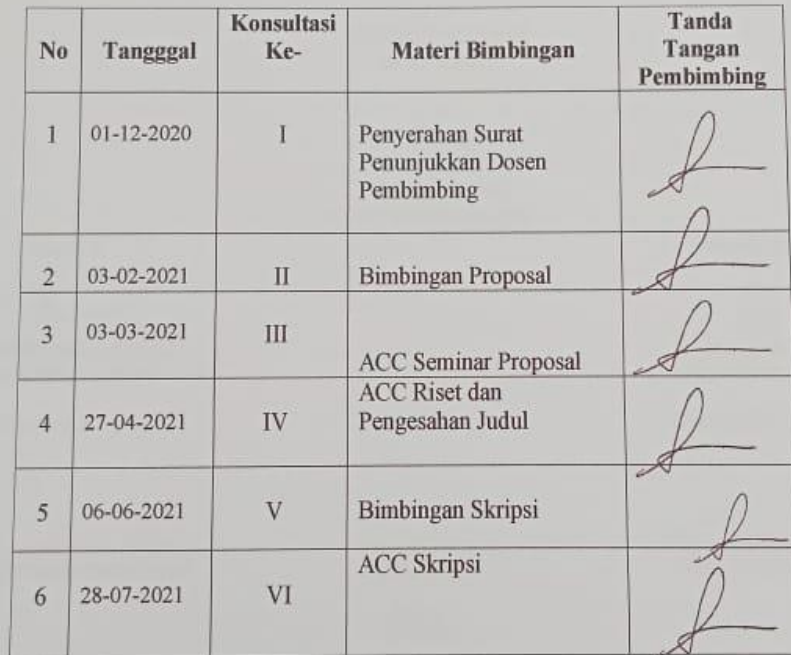 No Tangggal Konsultasi Ke- Materi Bimbingan Tanda Tangan Pembimbing
1 01-12-2020 I Penyerahan Surat
Penunjukkan Dosen
Pembimbing
2 03-02-2021 II Bimbingan Proposal
3 03-03-2021 III ACC Seminar Proposal
4 27-04-2021 IV ACC Riset dan
Pengesahan Judul
5 06-06-2021 V Bimbingan Skripsi
6 28-07-2021 VI ACC Skripsi